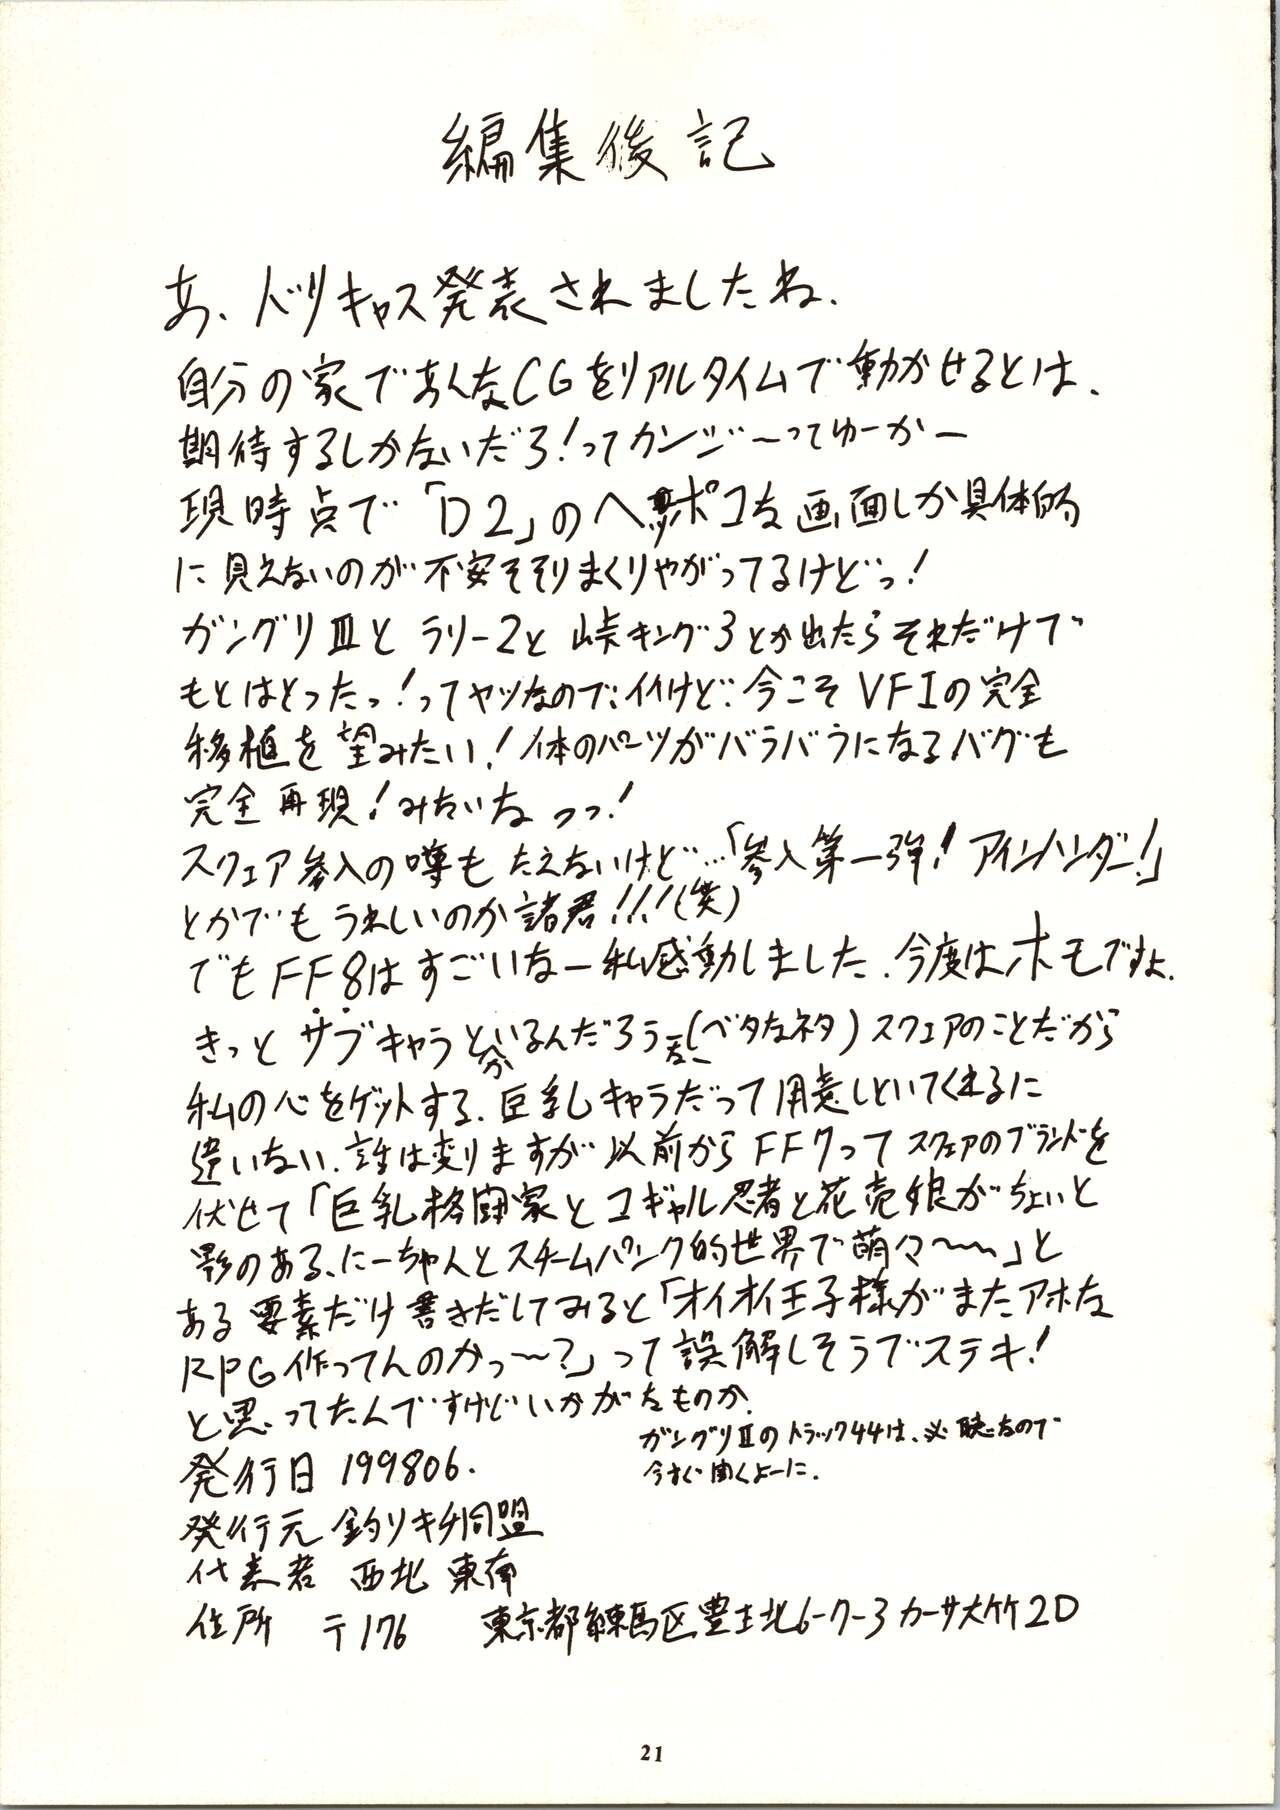 編集後記
あ、ドリキャス発表されましたね.
自分の家であんなCGをリアルタイムで動かせるとは、
期待するしかないだろ!ってカンジ〜ってゆーかー
現時点で「D2」のヘッポコな画面しか具体的
に見えないのが不安そそりまくりやがってるけどっ!
ガングリⅢとラリー2と峠キング3とか出たらそれだけで
もとはとったっ!ってヤツなので、イイけど、今こそVF1の完全
移植を望みたい!体のパーツがバラバラになるバグも
完全再現!みたいなっっ!
スクェア参入の噂もたえないけど…「参入第一弾!アインハンダー!」
とかでもうれしいのか諸君!!!(笑)
でもFF8はすごいなー私感動しました.今度はホモですよ.
きっとサブキャラとかいるんだろうなー(ベタなネタ)スクェアのことだから
私の心をゲットする、巨乳キャラだって用意しといてくれるに
違いない.話は変りますが以前からFF7ってスクェアのブランドを
伏せて「巨乳格闘家とコギャル忍者と花売娘がちょいと
影のある、にーちゃんとスチームパンク的世界で萌々〜〜」と
ある要素だけ書きだしてみると「オイオイ王子様がまたアホな
RPG作ってんのかっ〜?」って誤解しそうでステキ!
と思ってたんですけどいかがなものか.
ガングリⅡのトラック44は、必聴なので
今すぐ聞くよーに.
発行日 199806.
発行元 釣りキチ同盟
代表者 西北 東南
住所 〒176 東京都練馬区豊玉北6-7-3カーサ大竹2D
21